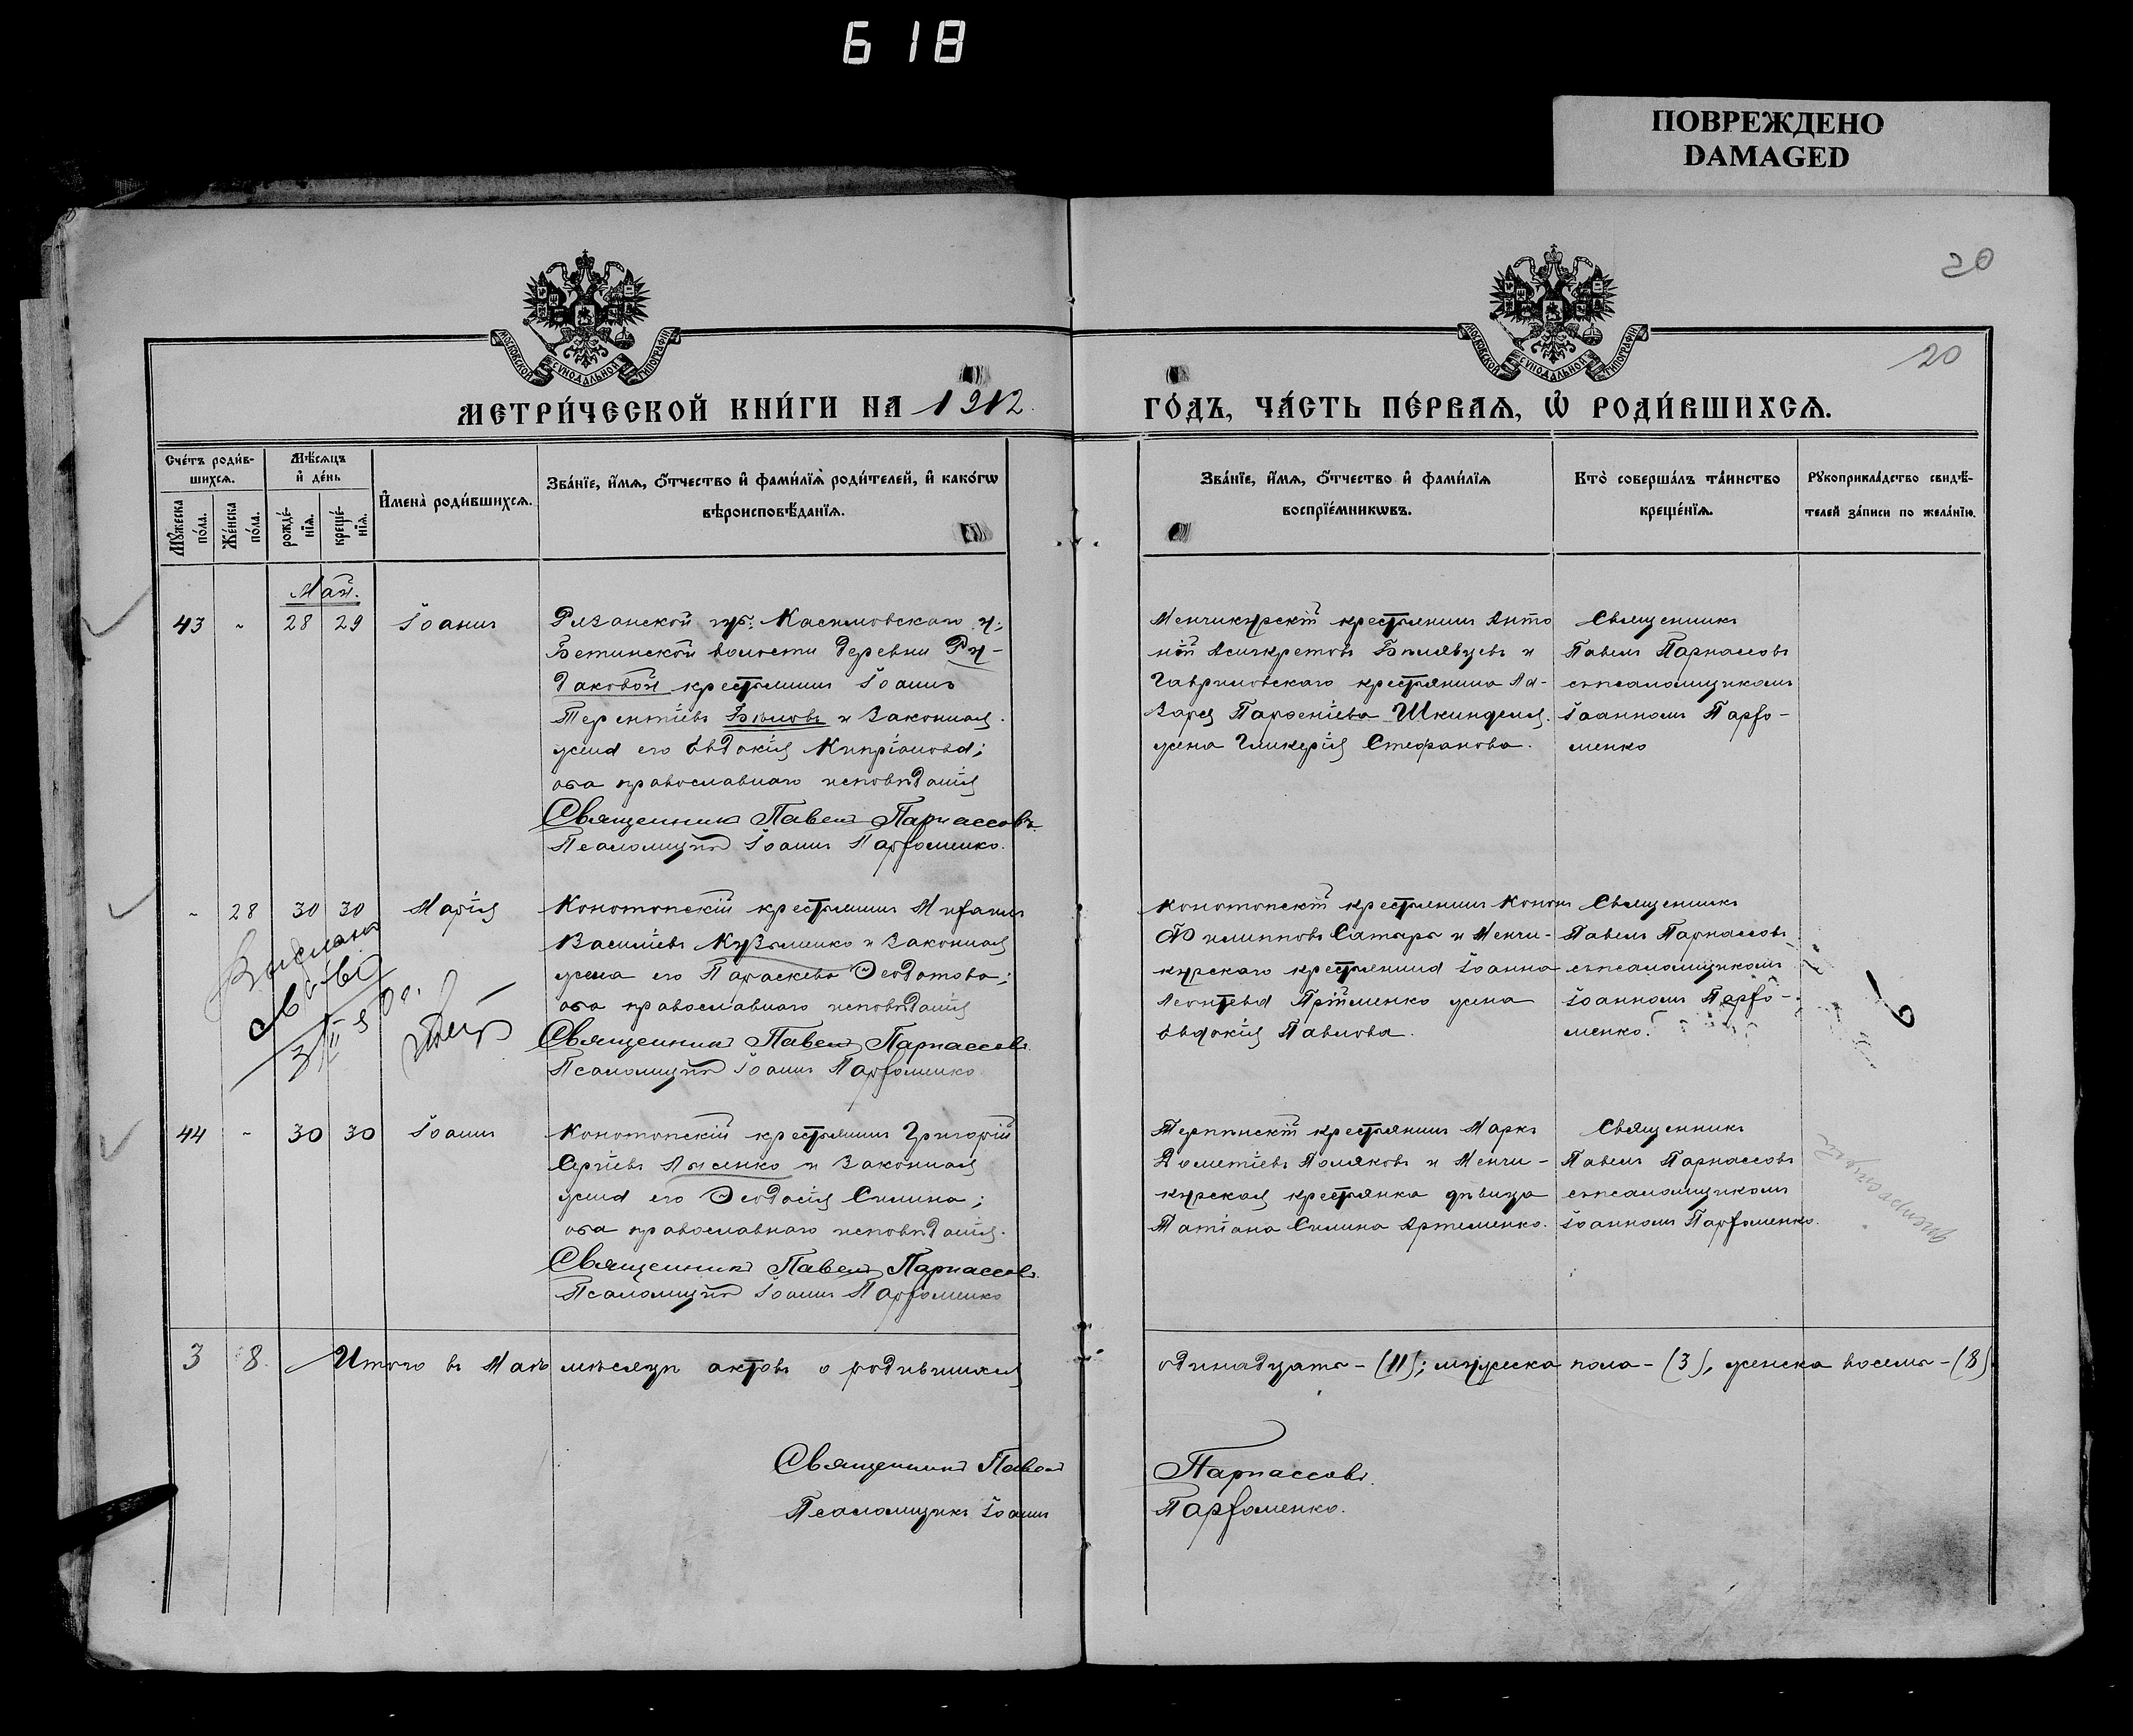 618
ПОВРЕЖДЕНО
DAMAGED
20
20
МОСКОВСКОЙ СУНОДАЛЬНОЙ ТИПОГРАФІИ
МОСКОВСКОЙ СУНОДАЛЬНОЙ ТИПОГРАФІИ
МЕТРИ́ЧЕСКОЙ КНИ́ГИ НА 1912.
ГО́ДЪ, ЧА́СТЬ ПЕ́РВАѦ, Ѡ҆ РОДИ́ВШИХСѦ.
Сче́тъ роди́в-
шихсѧ.
Мꙋ́жеска по́ла.
Же́нска по́ла.
Мѣ́сѧцъ
и҆ де́нь
рожде́-
нїѧ.
креще́-
нїѧ.
И҆мена̀ роди́вшихсѧ.
Зва́нїе, и҆́мѧ, ѻ҆́тчество и҆ фами́лїѧ роди́телей, и҆ како́гѡ
вѣроисповѣ́данїѧ.
Зва́нїе, и҆́мѧ, ѻ҆́тчество и҆ фами́лїѧ
воспрїе́мникѡвъ.
Кто̀ соверша́лъ та́инство
креще́нїѧ.
Рꙋкоприкла́дство свидѣ́-
телей за́писи по жела́нїю.
Май.
43 - 28 29 Іоаннъ
Рязанской губ. Касимовскаго у;
Бетинской волости деревни Ру-
даковой крестьянинъ Іоаннъ
Терентіевъ Бѣловъ и законная
жена его Евдокія Кипріанова;
оба православнаго исповѣданія
Священникъ Павелъ Парнассовъ.
Псаломщикъ Іоаннъ Парфоменко.
Менчикурскій крестьянинъ Анто
ній Асигкретовъ Билявцевъ и
Гавриловскаго крестьянина На-
зарія Парѳеніева Шкинделя.
жена Гликерія Стефанова.
Священникъ
Павелъ Парнассовъ
съ псаломщикомъ
Іоанномъ Парфо-
менко
- 28 30 30 Марія
Конотопскій крестьянинъ Мифанъ
Василіевъ Кузьменко и законная
жена его Параскева Ѳеодотова;
оба православнаго исповѣданія
Священникъ Павелъ Парнассовъ.
Псаломщикъ Іоаннъ Парфоменко
Конотопскій крестьянинъ Кононъ
Филипповъ Сатыръ и Менчи-
курскаго крестьянина Іоанна
Леонтьева Пріменко жена
Евдокія Павлова.
Священникъ
Павелъ Парнассовъ
съ псаломщикомъ
Іоанномъ Парфо-
менко.
44 - 30 30 Іоаннъ
Конотопскій крестьянинъ Григорій
Сергіевъ Лысенко и законная
жена его Ѳеодосія Силина;
оба православнаго исповѣданія.
Священникъ Павелъ Парнассовъ.
Псаломщикъ Іоаннъ Парфоменко
Терпинскій крестьянинъ Маркъ
Дометіевъ Поляковъ и Менчи-
курская крестьянка дѣвица
Татіана Силина Артеменко.
Священникъ
Павелъ Парнассовъ
съ псаломщикомъ
Іоанномъ Парфоменко.
3 8 Итого въ Маѣ мѣсяцѣ актовъ о родившихся
одинадцать - (11); мужеска пола - (3), женска восемь - (8).
Священникъ Павелъ
Парнассовъ.
Псаломщикъ Іоаннъ
Парфоменко.